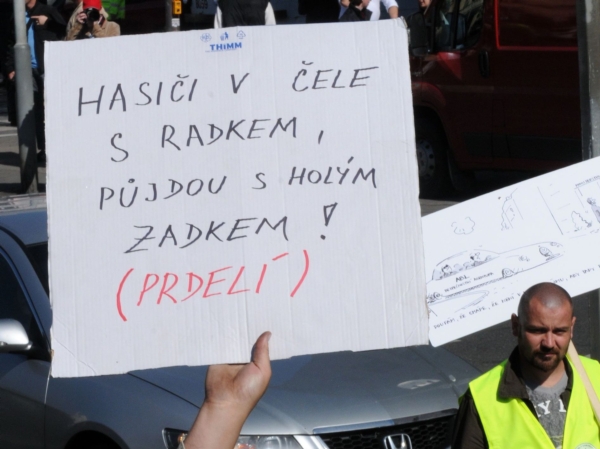 THIMM
HASIČI V ČELE
S RADKEM,
PŮJDOU S HOLÝM
ZADKEM!
(PRDELÍ)